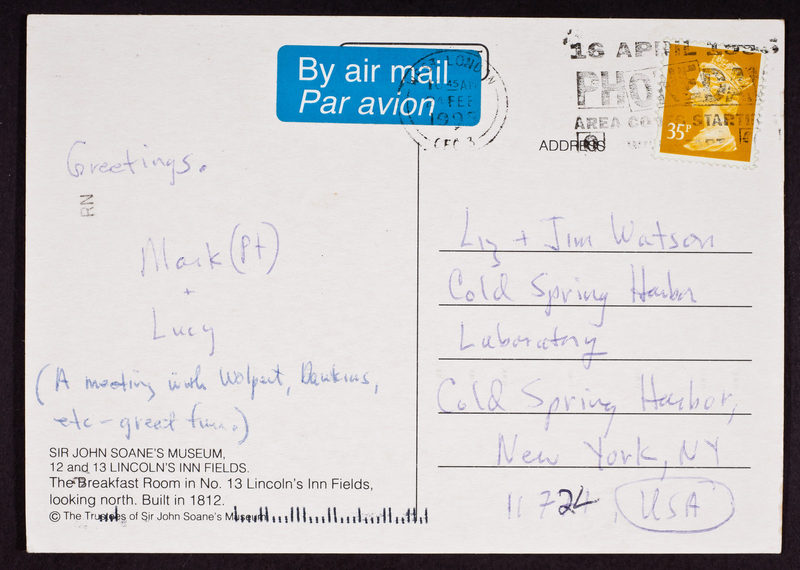 By air mail
Par avion
LONDON
FEB
16 APRIL
AREA CO STARTI
35P
ADDRESS
Greetings.
RN
Mark (Pt)
+
Lucy
(A meeting with Wolpert, Dawkins,
etc – great fun.)
SIR JOHN SOANE'S MUSEUM,
12 and 13 LINCOLN'S INN FIELDS.
The Breakfast Room in No. 13 Lincoln's Inn Fields,
looking north. Built in 1812.
© The Trustees of Sir John Soane's Museum
Liz + Jim Watson
Cold Spring Harbor
Laboratory
Cold Spring Harbor,
New York, NY
11724, USA